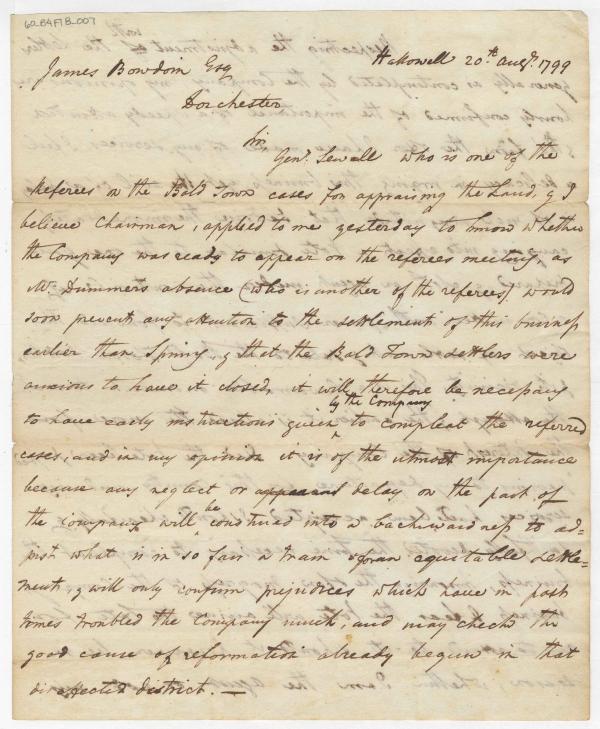 60_B4F7B_007
Hallowell 20th Augt. 1799
James Bowdoin Esq
Dorchester
Sir,
Genl. Sewall who is one of the
Referees on the Bald Town cases for appraising the Land, & I
believe Chairman, applied to me yesterday to know whether
the Company was ready to appear on the referees meeting, as
Mr. Dummer's absence (who is another of the referees) would
soon prevent any attention to the settlement of this business
earlier than Spring, & that the Bald Town settlers were
anxious to have it closed, it will therefore be necessary
by the Company
to have early instructions given to compleat the referred
cases, and in my opinion it is of the utmost importance
because any neglect or delay on the part of
the Company will be construed into a backwardness to ad-
just what is in so fair a train for an equitable settle-
ment, & will only confirm prejudices which have in past
times troubled the Company much, and may check the
good cause of reformation already begun in that
disaffected district. —